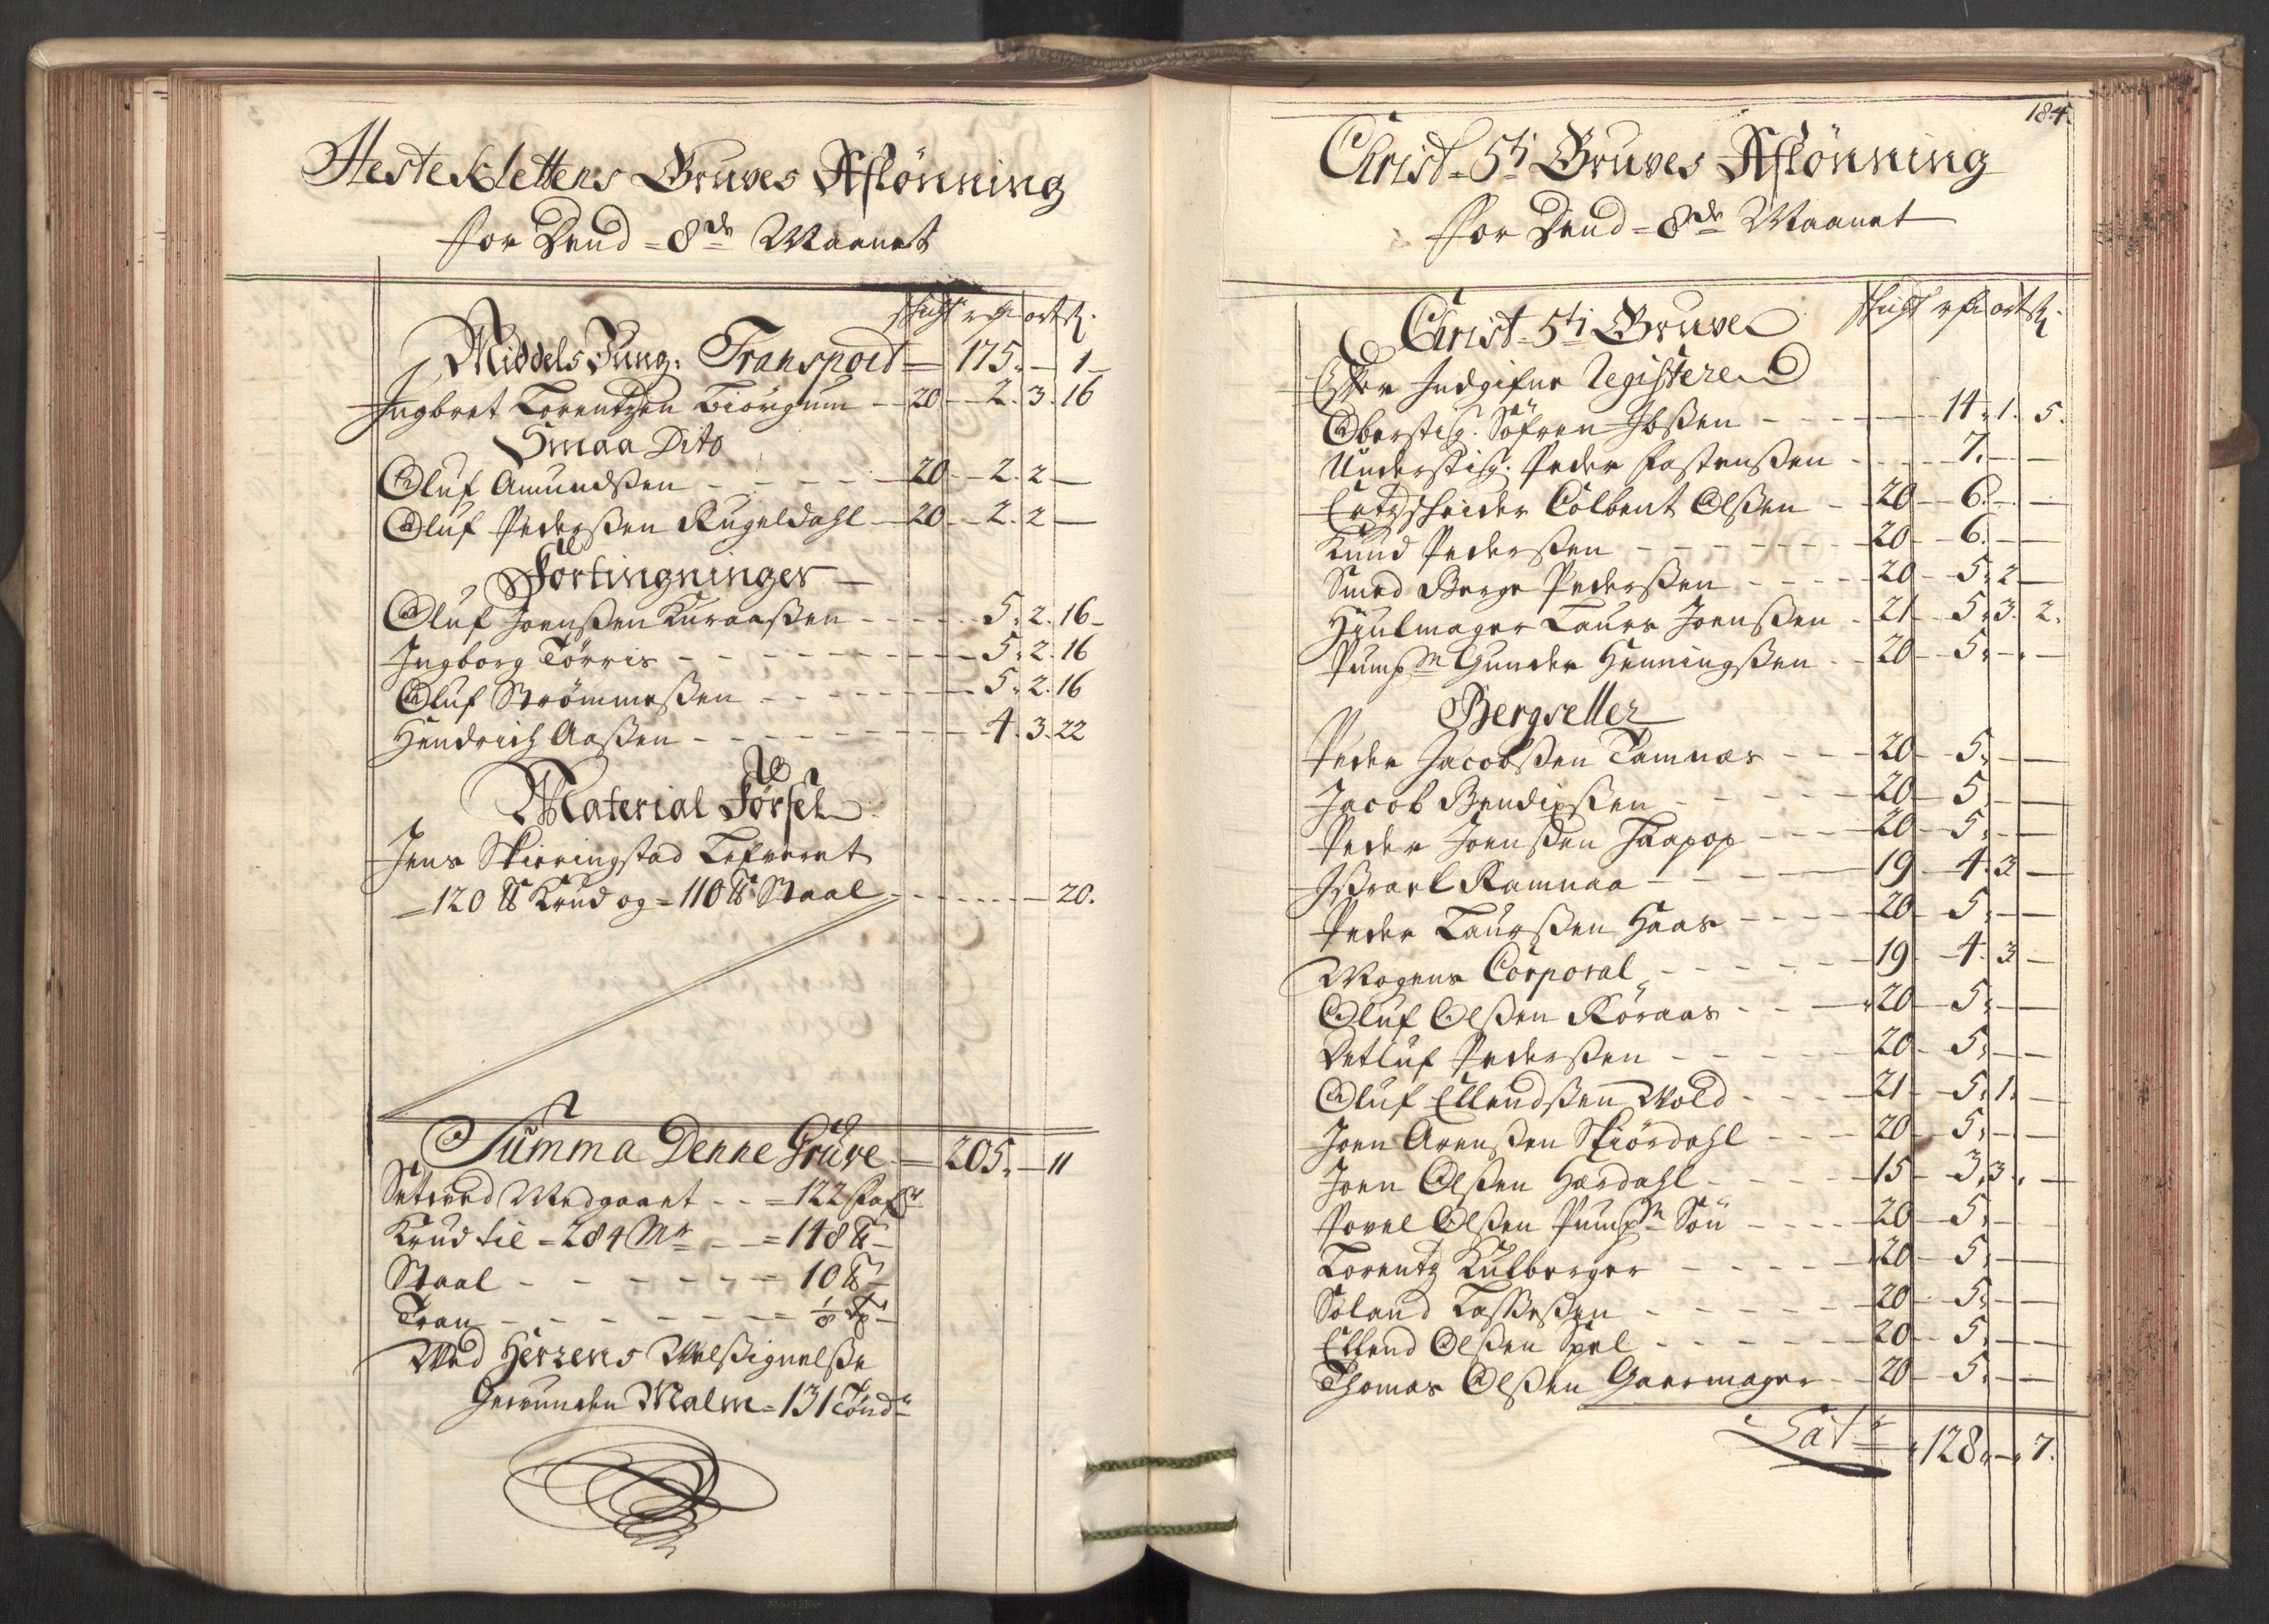 HesteKlettens Gruves Afflönning
for Dend = 8de Maanet
schicht rdr ort s.
Middels Jung: Transport = 175. — 1 —
Ingbret Lorentzen Biörgum — 20 — 2. 3. 16
Smaa Dito
Oluf Amundsßen — 20 — 2. 2 —
Oluf Pedersßen Rugeldahl — 20 — 2. 2 —
Fortingninger —
Oluf Joensßen Kuraasßen — 5. 2. 16 —
Ingborg Törris — 5. 2. 16
Oluf Strömmesßen — 5. 2. 16
Hendrich Aasßen — 4. 3. 22
Material Förßel
Jens Skieringstad Lefveret
= 120 ℔ Krud og = 110 ℔ Staal — 20.
Summa Denne Gruve = 205. — 11
Setved Medgaaet — = 122 fafn
Krud til = 284 Mr — = 148 ℔ —
Staal — 10 ℔ —
Tran — = 1/8 Tr —
Ved Herrens Velsignelße
Gevunden Malm = 131 Tönd
184.
Christ = 5ti Gruves Afflönning
for Dend = 8de Maanet
Christ = 5ti Gruve schicht rdr ort s.
Efter Indgifne Registere
Oberstig. Söfren Ibsßen — 14. 1. 5.
Understig. Peder Fastensßen — 7. — —
Ertzscheider Colbent Olsßen — 20 — 6. — —
Knud Pedersßen — 20 — 6. — —
Smed Berge Pedersßen — 20 — 5. 2 —
Hiulmager Laurs Joensßen — 21 — 5. 3. 2.
Pumpm Gunder Henningsßen — 20 — 5. — —
Bergseller
Peder Jacobsßen Tamnæs — 20 — 5. — —
Jacob Bendixsßen — 20 — 5. — —
Peder Joensßen Haapop — 20 — 5. — —
Ißrael Ramnaa — 19 — 4. 3 —
Peder Laursßen Haas — 20 — 5. — —
Mogens Corporal — 19 — 4. 3 —
Oluf Olsßen Röraas — 20 — 5. — —
Detluf Pedersßen — 20 — 5. — —
Oluf Ellendsßen Wold — 21 — 5. 1. —
Joen Arensßen Skiördahl — 20 — 5. — —
Joen Olsßen Hærdahl — 15 — 3. 3. —
Povel Olsßen Pumpm Sön — 20 — 5. — —
Lorentz Kulberger — 20 — 5. — —
Söland Lassesßen — 20 — 5. — —
Ellend Olsßen Spel — 20 — 5. — —
Thomas Olsßen Gaermager — 20 — 5. — —
Lat — 128. — 7.